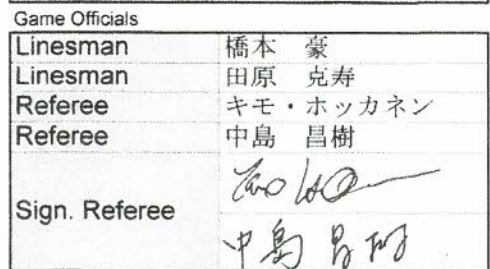 Game Officials
Linesman 橋本 豪
Linesman 田原 克寿
Referee キモ・ホッカネン
Referee 中島 昌樹
Sign. Referee
中島 昌樹